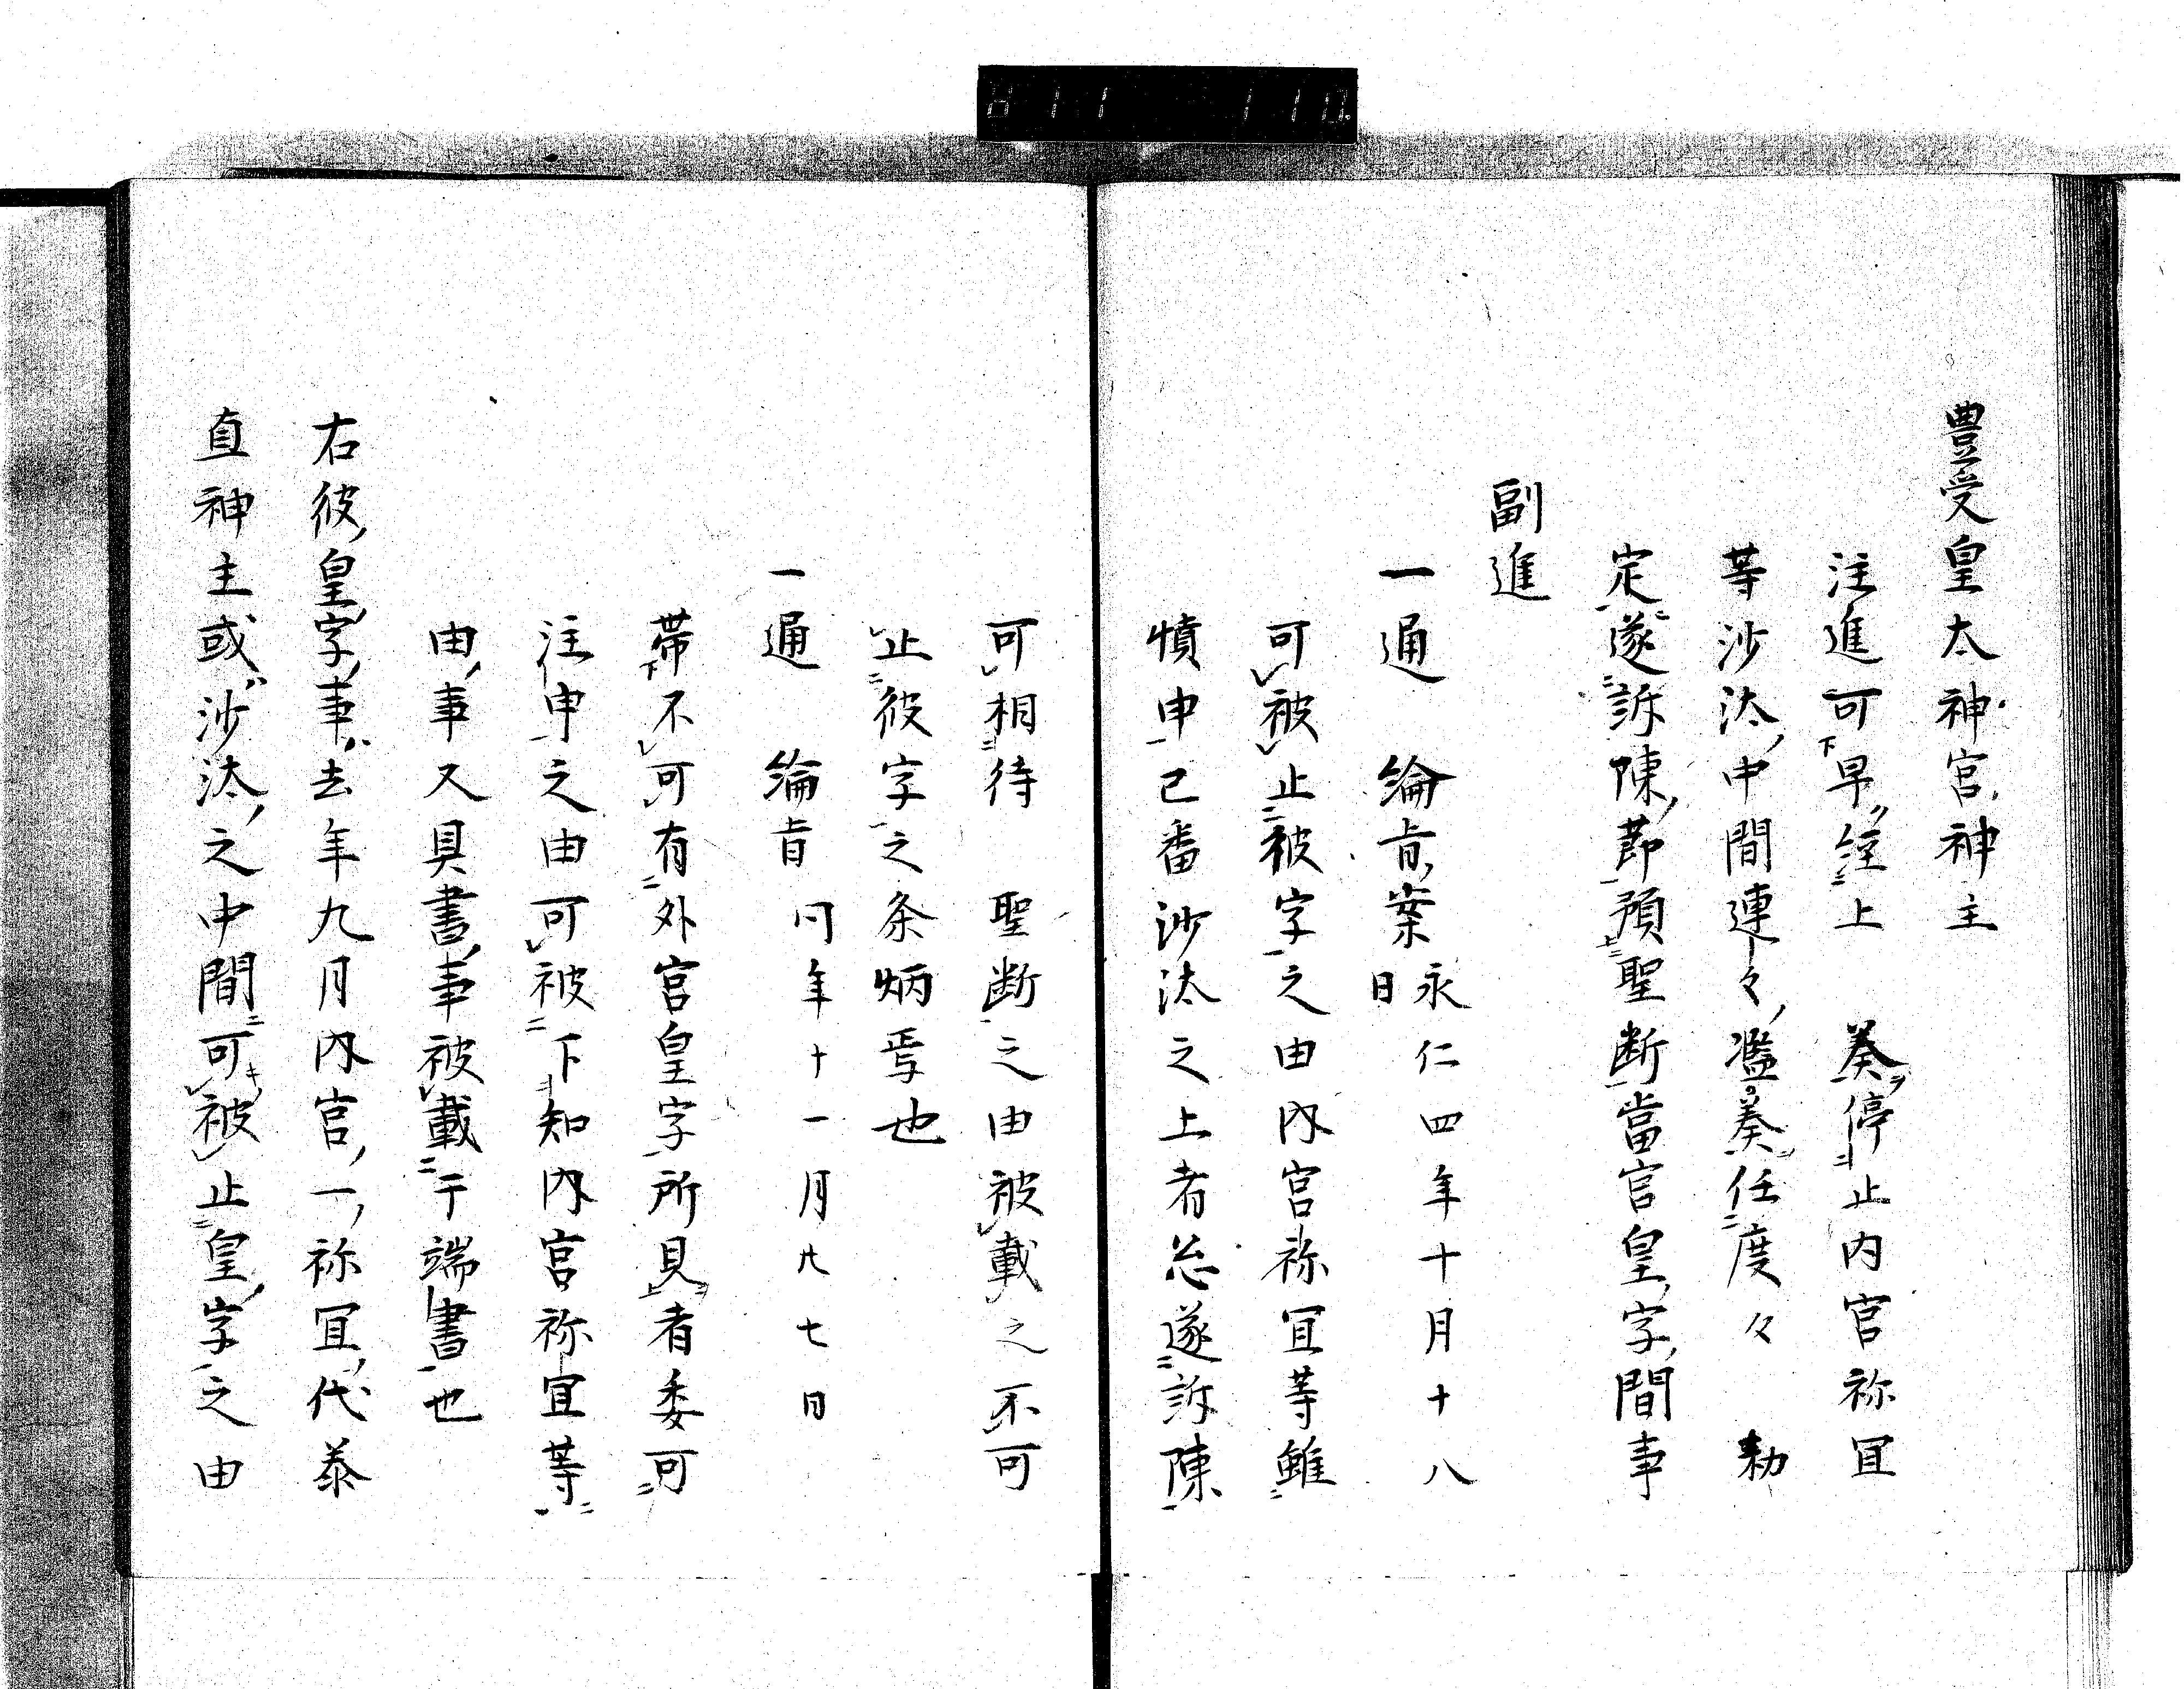 豊受皇太神宮神主
注進可早経上　奏停止内宮祢冝
等沙汰中間連々濫奏任度々　勅
定遂訴陳節預聖断當宮皇字間事
副進
一通　綸旨案永仁四年十月十八日
可被止彼字之由内宮祢冝等雖
憤申已番沙汰之上者忩遂訴陳
可相待　聖断之由被載之不可
止彼字之条炳焉也
一通　綸旨同年十一月廿七日
帯不可有外宮皇字所見者委可
注申之由可被下知内宮祢冝等
由事又具書事被載于端書也
右彼皇字事去年九月内宮一祢冝代泰
直神主或沙汰之中間可被止皇字之由